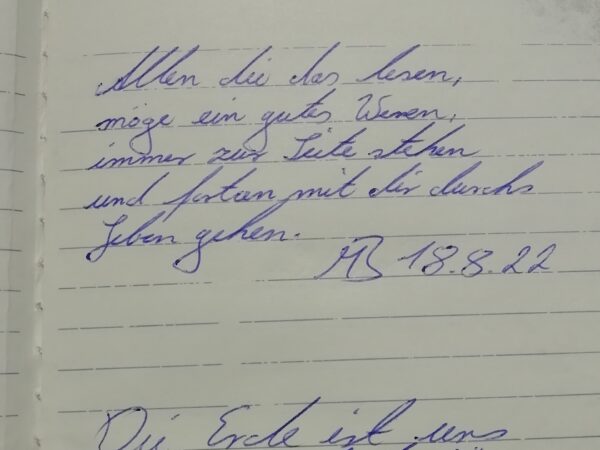 Allen die das lesen,
möge ein gutes Wesen,
immer zur Seite stehen
und fortan mit dir durchs
Leben gehen.
MB 18.8.22
Die Erde ist uns